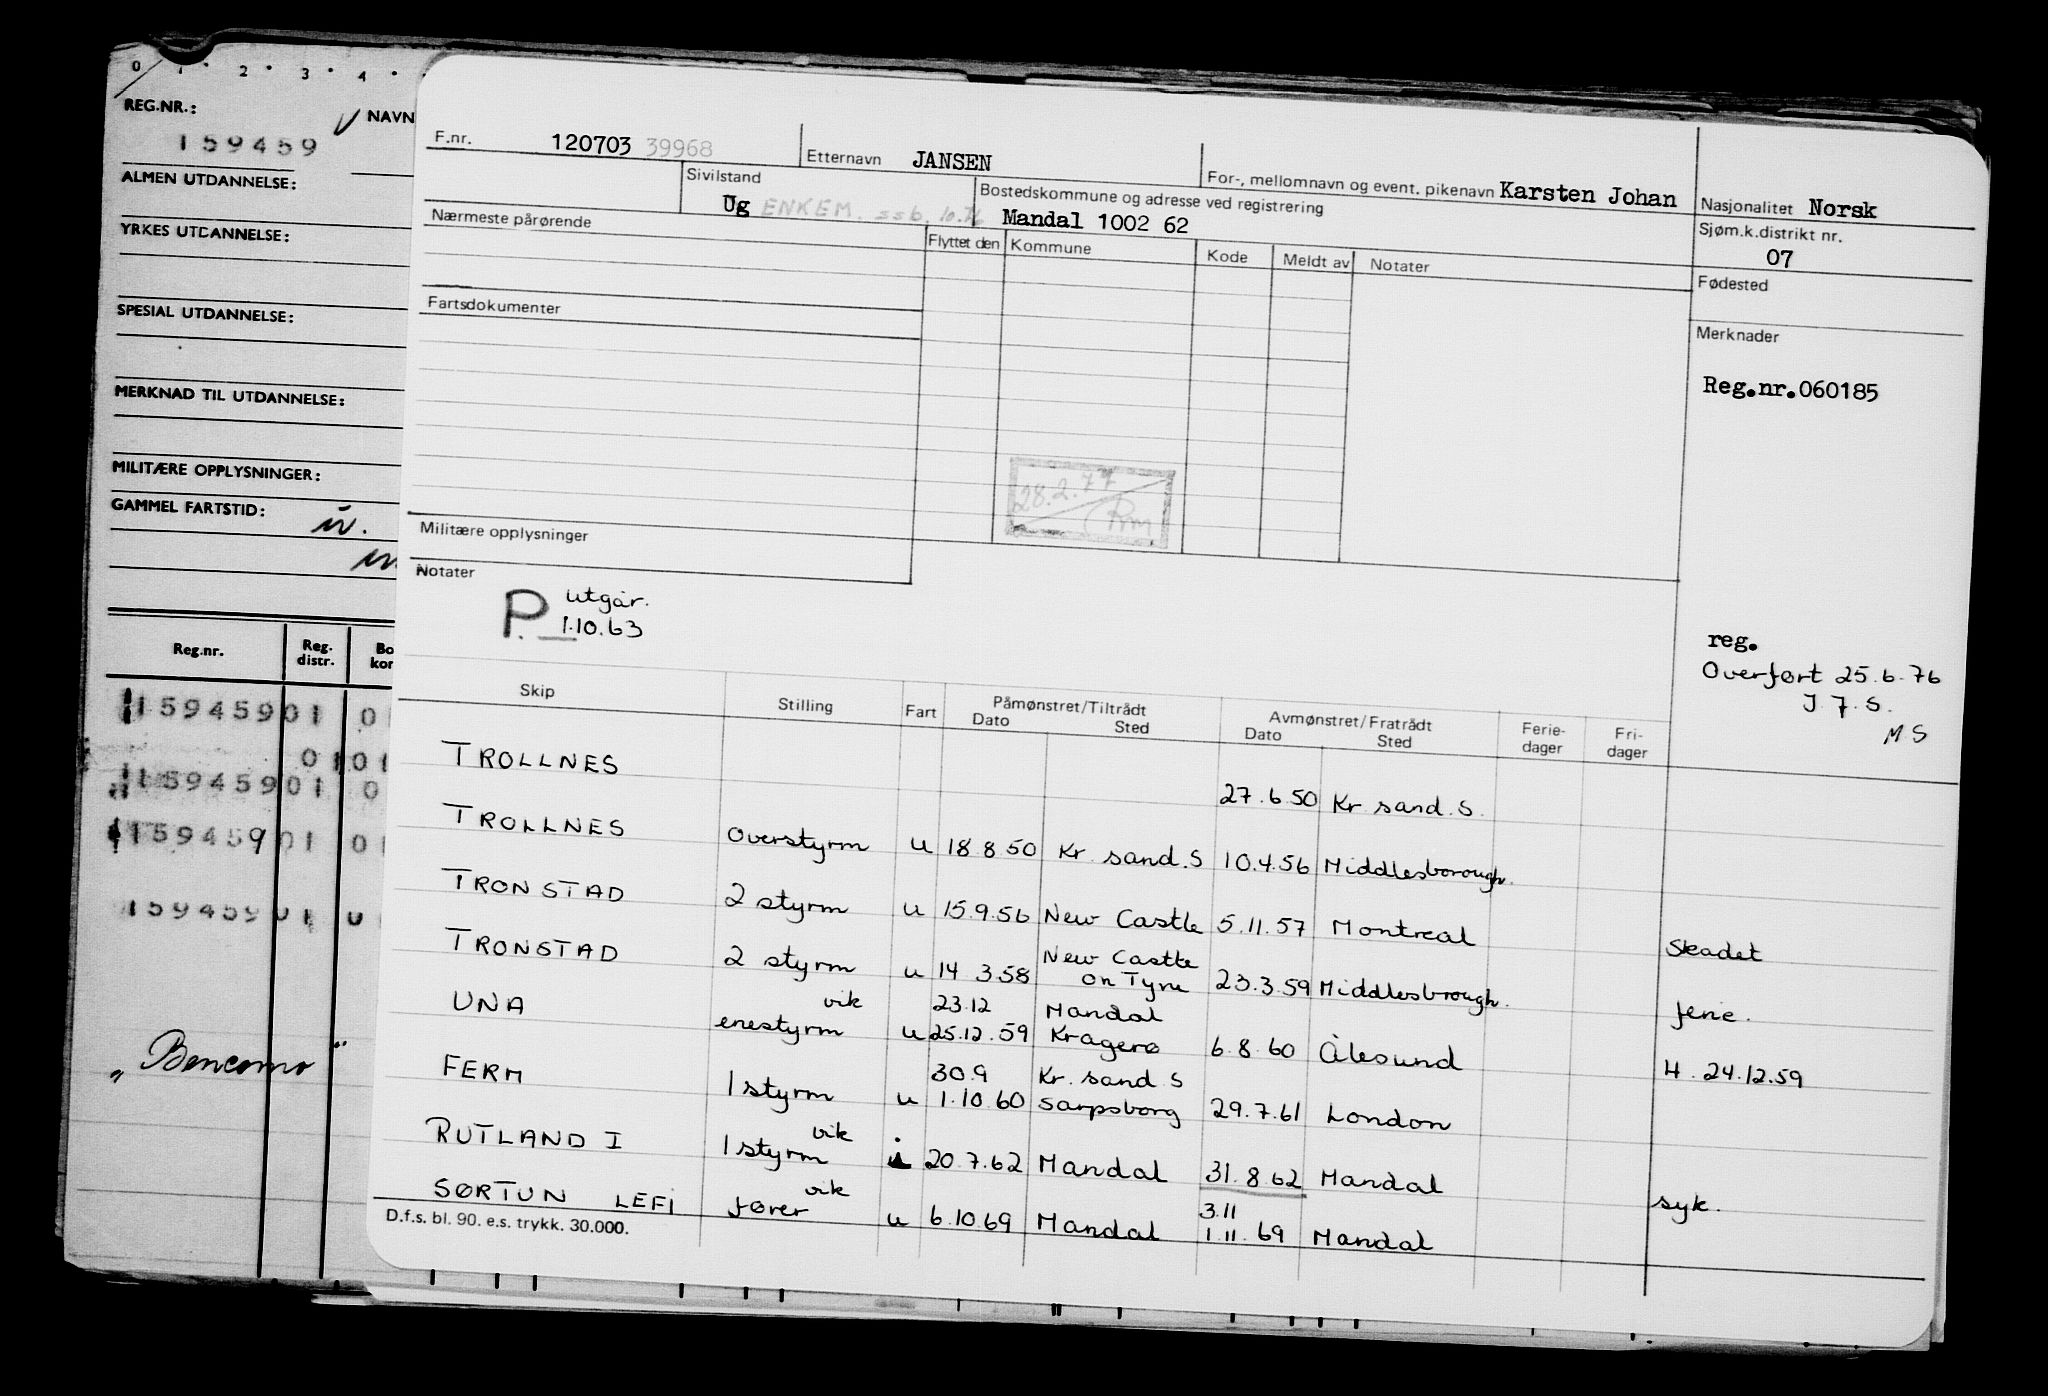 0 1 2 3 4
REG.NR.:
NAVN
159459
ALMEN UTDANNELSE:
YRKES UTDANNELSE:
SPESIAL UTDANNELSE:
MERKNAD TIL UTDANNELSE:
MILITÆRE OPPLYSNINGER:
GAMMEL FARTSTID:
Reg.nr. Reg. distr. Bo kor
159459 01 0
01 01
159459 01 0
159459 01 0
159459 01 0
„Bencomo"
F.nr. 120703 39968 Etternavn JANSEN For-, mellomnavn og event. pikenavn Karsten Johan Nasjonalitet Norsk
Sivilstand Ug ENKEM. ssb. 10.76 Bostedskommune og adresse ved registrering Mandal 1002 62
Sjøm.k.distrikt nr. 07
Nærmeste pårørende
Flyttet den Kommune Kode Meldt av Notater
Fødested
Fartsdokumenter
Merknader
Reg.nr.060185
28.2.77
Militære opplysninger
Notater
P utgår.
1.10.63
reg.
Overført 25.6.76
J.F.S.
MS
Skip Stilling Fart Påmønstret/Tiltrådt Avmønstret/Fratrådt Ferie-dager Fri-dager
Dato Sted Dato Sted
TROLLNES 27.6.50 Kr sand.S.
TROLLNES Overstyrm u 18 8 50 Kr sand.S 10.4.56 Middlesborough.
TRONSTAD 2 styrm u 15.9.56 New Castle 5.11.57 Montreal Skadet
TRONSTAD 2 styrm u 14 3.58 New Castle on Tyne 23.3.59 Middlesbrough. ferie.
UNA vik 23.12 Mandal
enestyrm u 25.12.59 Kragerø 6.8.60 Ålesund H. 24.12.59
FERM 30.9 Kr. sand S
1 styrm u 1.10.60 Sarpsborg 29.7.61 London
RUTLAND I vik
1 styrm i 20.7.62 Mandal 31.8.62 Mandal syk.
SØRTUN LEFI vik 3.11
fører u 6.10.69 Mandal 1.11.69 Mandal
D.f.s. bl. 90. e.s. trykk. 30.000.